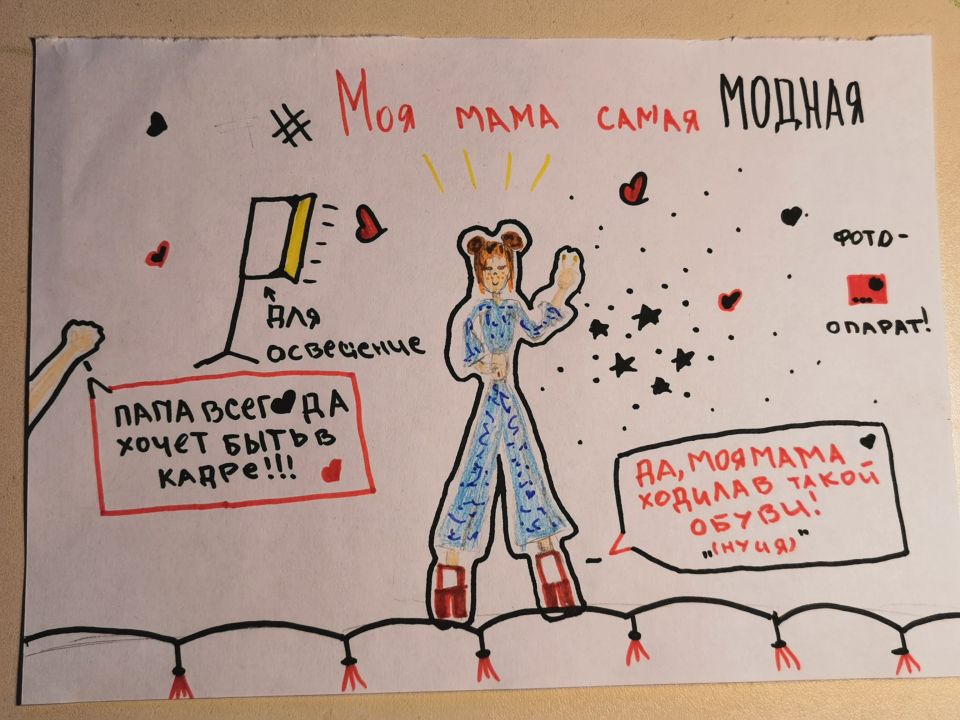 # Моя мама самая МОДНАЯ
ФОТО-
ОПАРАТ!
ДЛЯ
ОСВЕЩЕНИЕ
ПАПА ВСЕГДА
ХОЧЕТ БЫТЬ В
КАДРЕ!!!
ДА, МОЯ МАМА
ХОДИЛА В ТАКОЙ
ОБУВИ!
"(НУ И Я)"